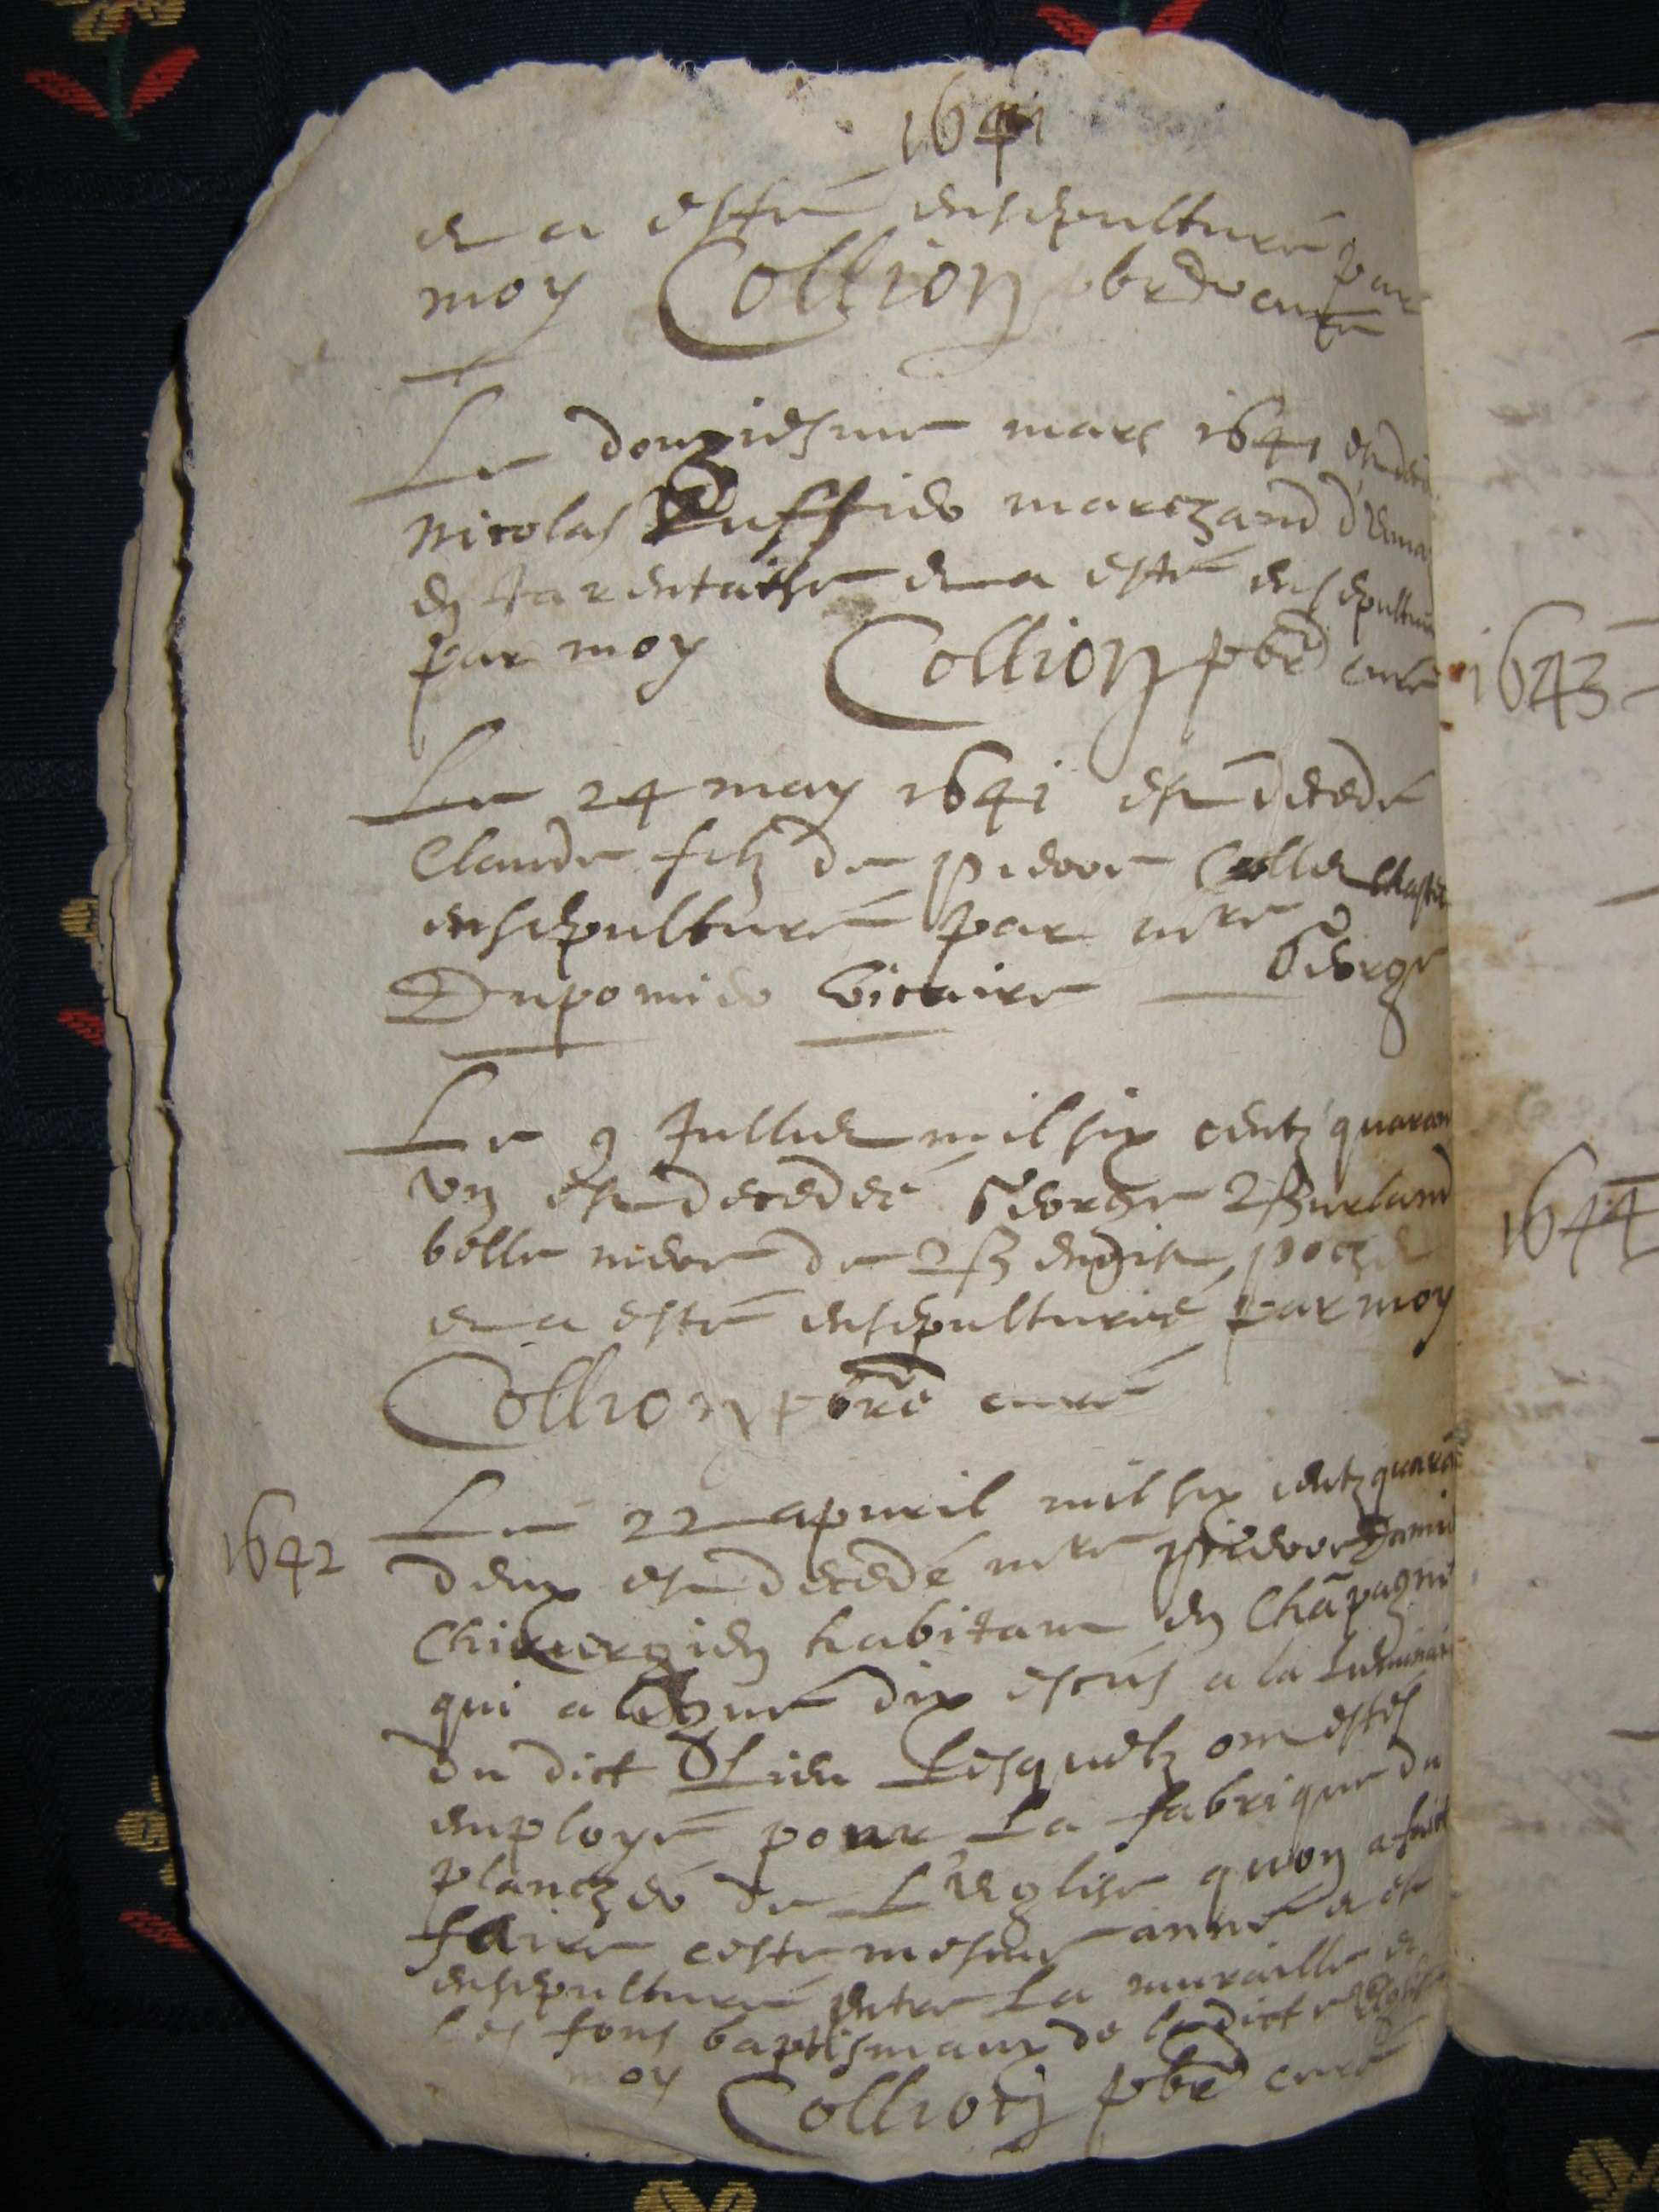 1641
et a esté ensepulturé par
moy Collion pbre curé
Le douziesme mars 1641 est
Nicolas Ruffier marchand
en Tarentaise et a esté ensepultu
par moy Collion pbre curé
Le 24 may 1641 est decedé
Claude filz de pierre Collet
ensepulturé par mre
George
Dupomier vicaire
Le 9 Julliet mil six centz quaran
un est decedee George Burland
belle mere de
et a esté ensepulturee par moy
Collion pbre curé
1642
Le 22 apvril mil six centz quara
deux est decedé mre pierre
Chirurgien habitant en Chãpagni
qui a legué dix escus a la
du dict Lieu Lesquelz ont estés
employé pour La fabrique du
plancher de L'eglise quon a faict
faire ceste mesme anné et est
ensepulturé entre La muraille et
les fons baptismaux de ladicte eglise
moy Collion pbre curé
1643
1644